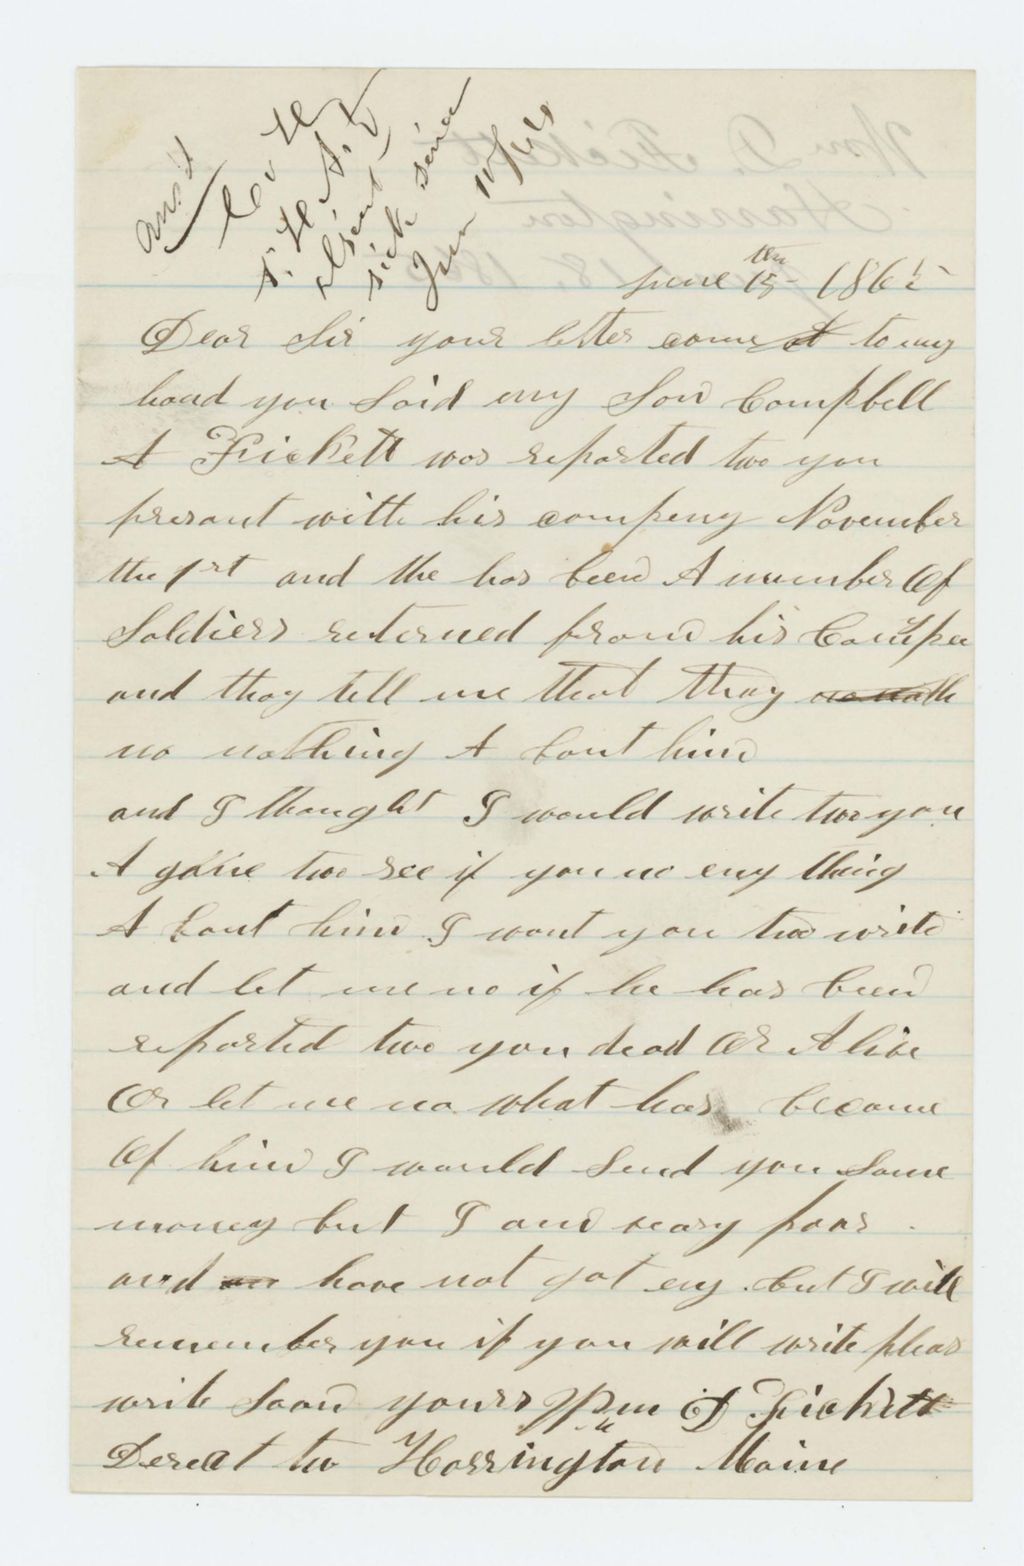 ansd
Co H
1. H. A.
absent
sick since
Jun 10/64
Wm D. Fickett
Harrington
June 18, 186
June 15th 1865
Dear Sir your letter come at to my
hand you Said my Son Campbell
A Fickett was reported two you
presant with his compeny November
the 1st and the has been A number Of
Soldiers returned from his Compea
and thay tell me that thay
no nothing A bout him
and I thought I would write two you
A gaine two see if you no eny thing
A bout him I want you two write
and let me no if he has been
reported two you dead Or A live
Or let me no what has become
Of him I would Send you Some
money but I am veary poor
and have not got eny but I will
remember you if you will write pleas
write Soon yours Wm D Fickett
Derect two Harrington Maine